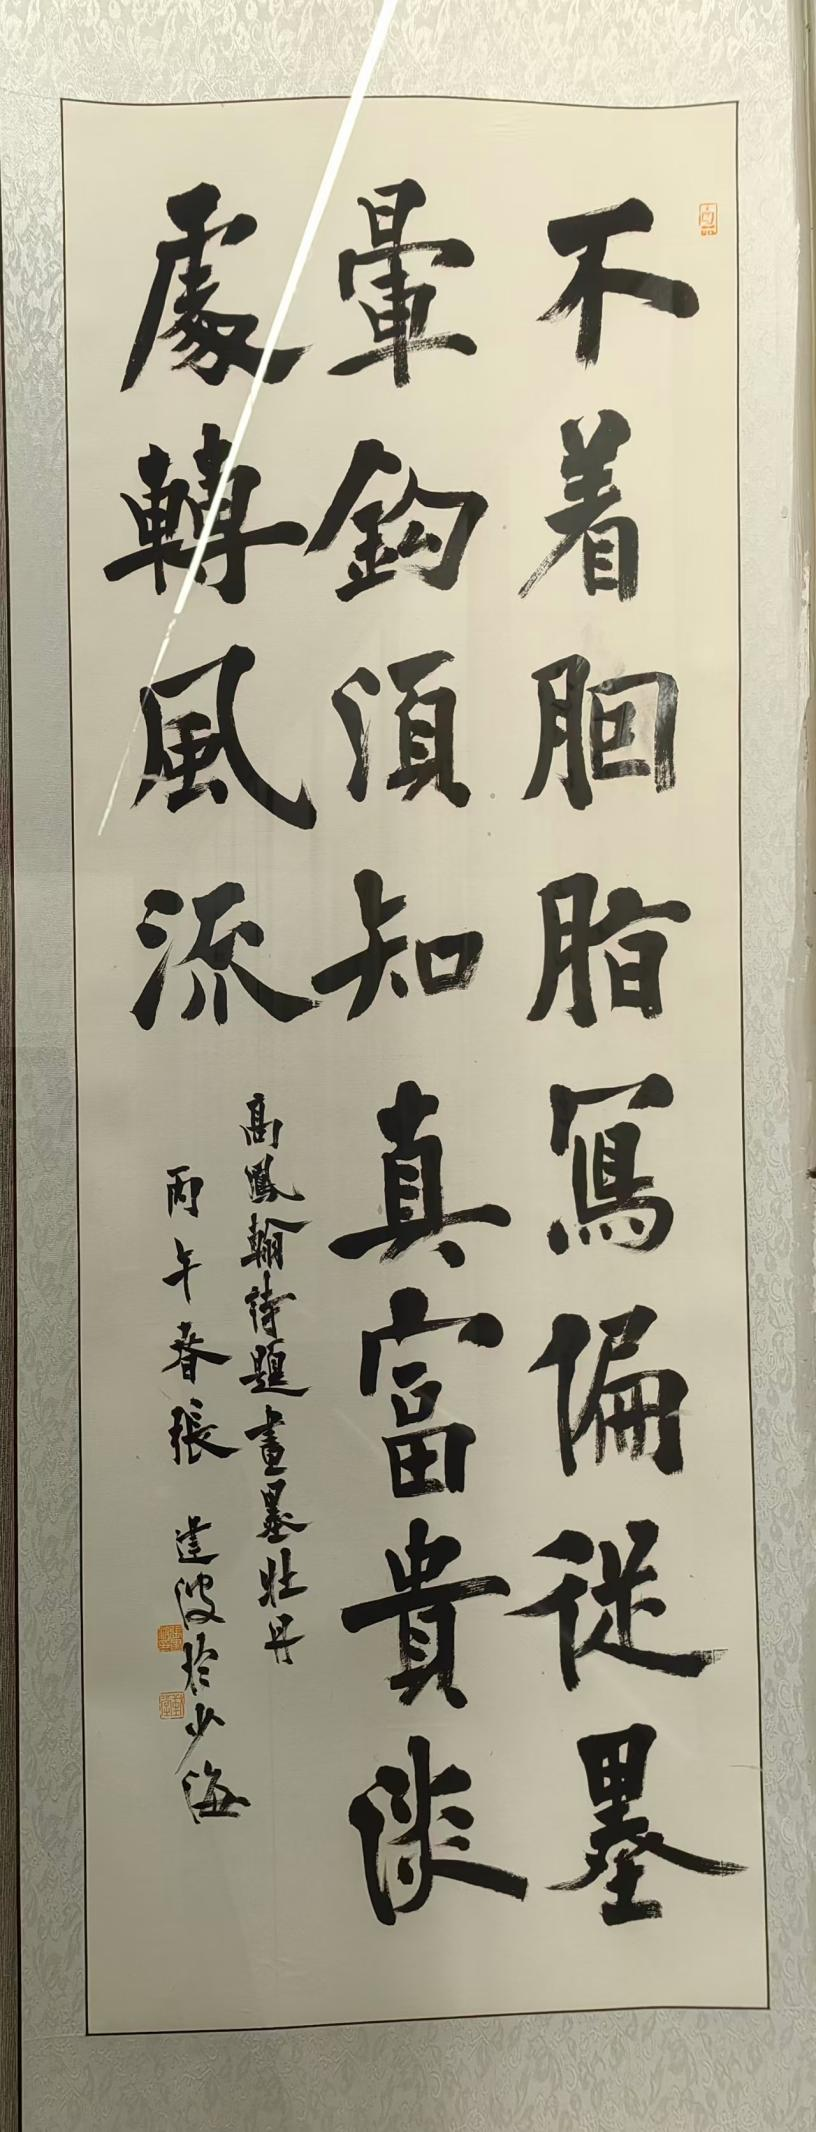 不着胭脂寫偏從墨
暈鈎須知真富貴淡
處轉風流
高鳳翰詩題畫墨牡丹
丙午春張達波於少海